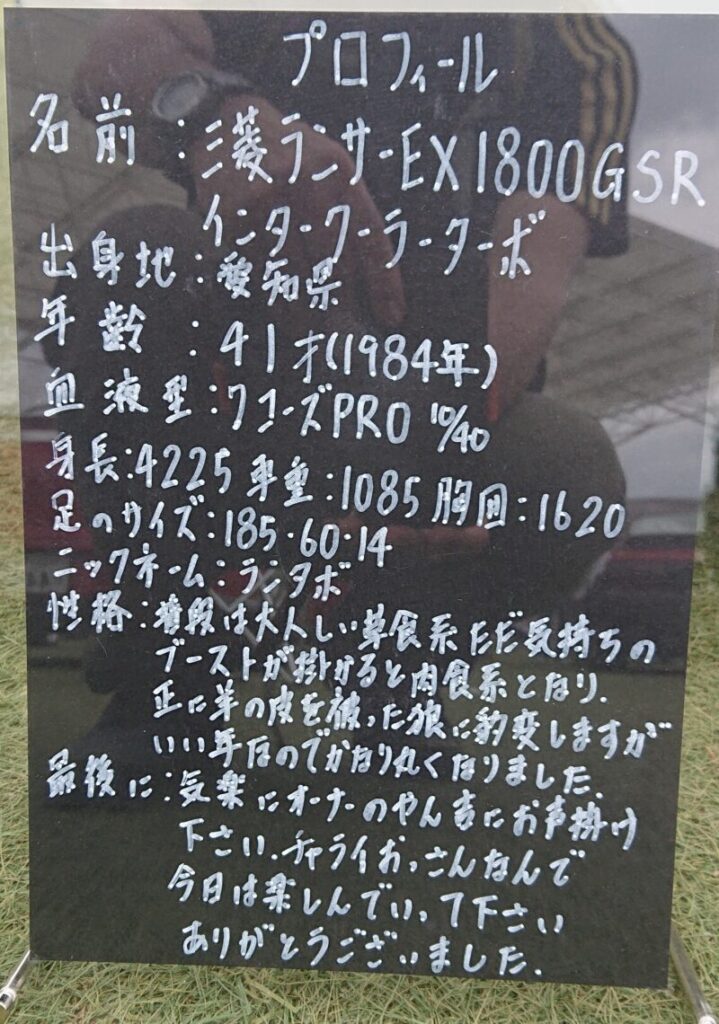 プロフィール
名前：三菱ランサーEX1800GSR
インタークーラーターボ
出身地：愛知県
年齢：41才(1984年)
血液型：ワコーズPRO 10/40
身長：4225 車重：1085 胸囲：1620
足のサイズ：185・60・14
ニックネーム：ランタボ
性格：普段は大人しい草食系ただ気持ちの
ブーストが掛かると肉食系となり.
正に羊の皮を被った狼に豹変しますが
いい年なのでかなり丸くなりました.
最後に：気楽にオーナーのやん吉にお声掛け
下さい.チャライおっさんなんで
今日は楽しんでいって下さい
ありがとうございました.